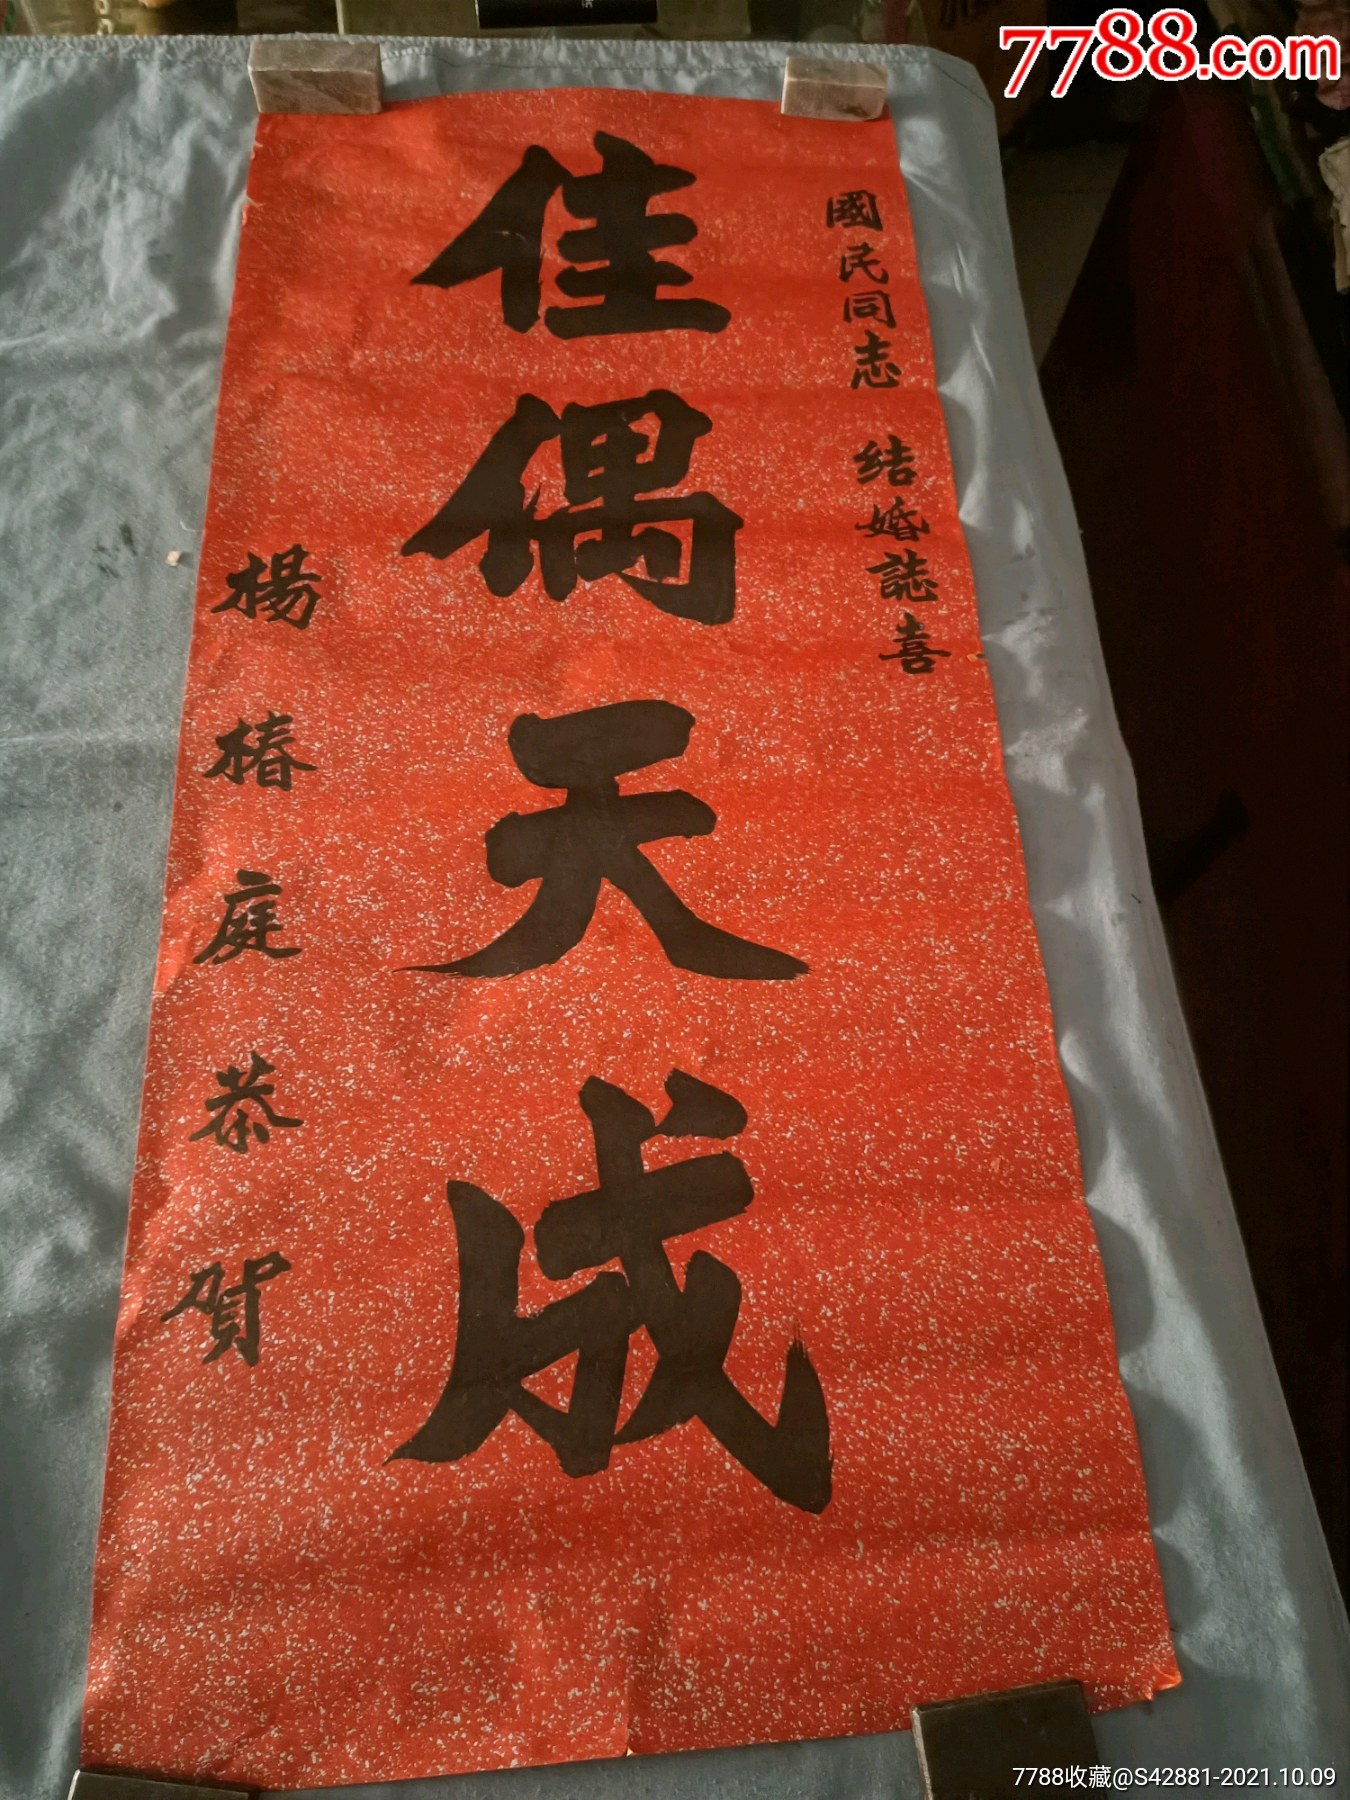 7788.com
國民同志 结婚誌喜
佳偶天成
楊椿庭恭贺
7788收藏@S42881-2021.10.09